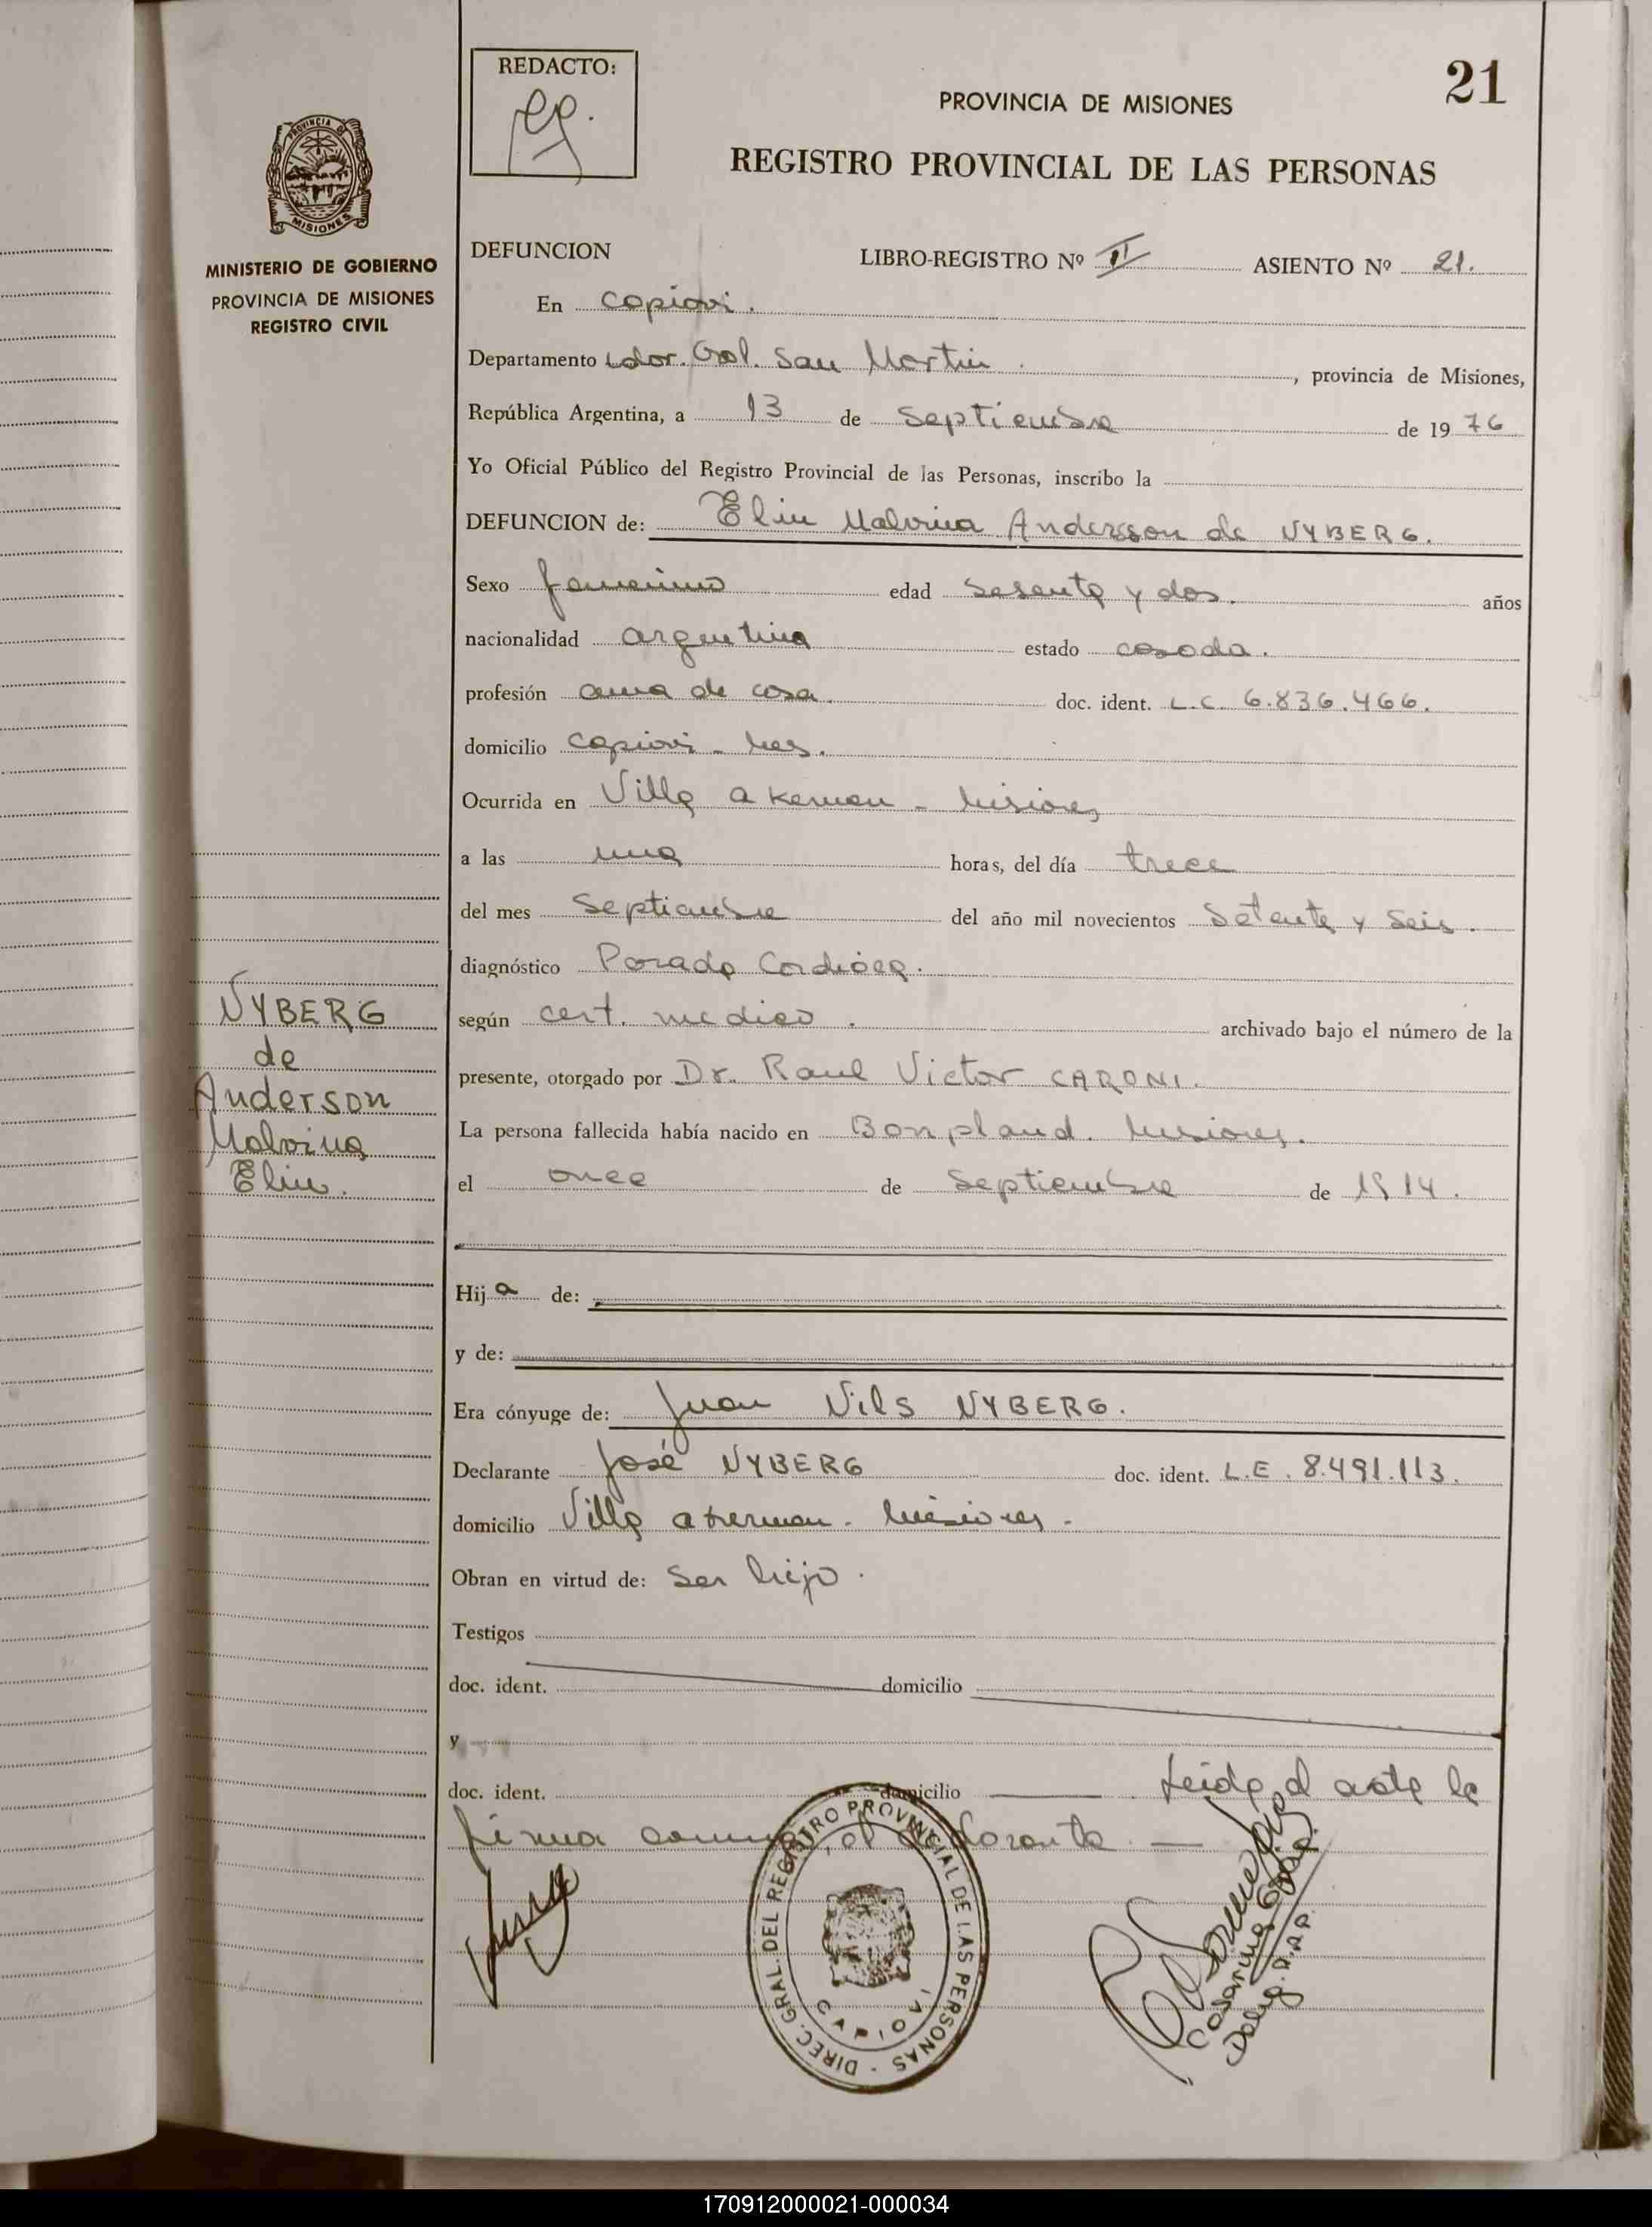 21
REDACTO:
PROVINCIA DE MISIONES
REGISTRO PROVINCIAL DE LAS PERSONAS
PROVINCIA DE
MISIONES
MINISTERIO DE GOBIERNO
PROVINCIA DE MISIONES
REGISTRO CIVIL
DEFUNCION LIBRO-REGISTRO Nº II ASIENTO Nº 21.
En Capiovi.
Departamento Ldor. Gral. San Martin, provincia de Misiones,
República Argentina, a 13 de Septiembre de 1976
Yo Oficial Público del Registro Provincial de las Personas, inscribo la
DEFUNCION de: Elin Malvina Andersson de NYBERG.
Sexo femenino edad sesenta y dos. años
nacionalidad argentina estado casada.
profesión ama de casa. doc. ident. L.C. 6.836.466.
domicilio Capiovi - Mes.
Ocurrida en Villa akerman - Misiones
a las una horas, del día trece
del mes Septiembre del año mil novecientos Setenta y Seis.
diagnóstico Parada Cardiáca.
según cert. medico. archivado bajo el número de la
presente, otorgado por Dr. Raul Victor CARONI.
La persona fallecida había nacido en Bonpland. Misiones.
el once de Septiembre de 1914.
NYBERG
de
Anderson
Malvina
Elin.
Hija de:
y de:
Era cónyuge de: Juan Nils NYBERG.
Declarante José NYBERG doc. ident. L.E. 8.491.113.
domicilio Villa akerman. Misiones.
Obran en virtud de: Ser hijo.
Testigos
doc. ident. domicilio
y
doc. ident. domicilio Leida el acta la
firma conmigo, el declarante.
DIREC. GRAL. DEL REGISTRO PROVINCIAL DE LAS PERSONAS
CAPIOVI
170912000021-000034